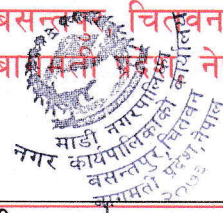 बसन्तपुर, चितवन
बागमती प्रदेश, ने
माडी नगरपालिका
नगर कार्यपालिकाको कार्यालय
बसन्तपुर, चितवन
बागमती प्रदेश, नेपाल
२०७३